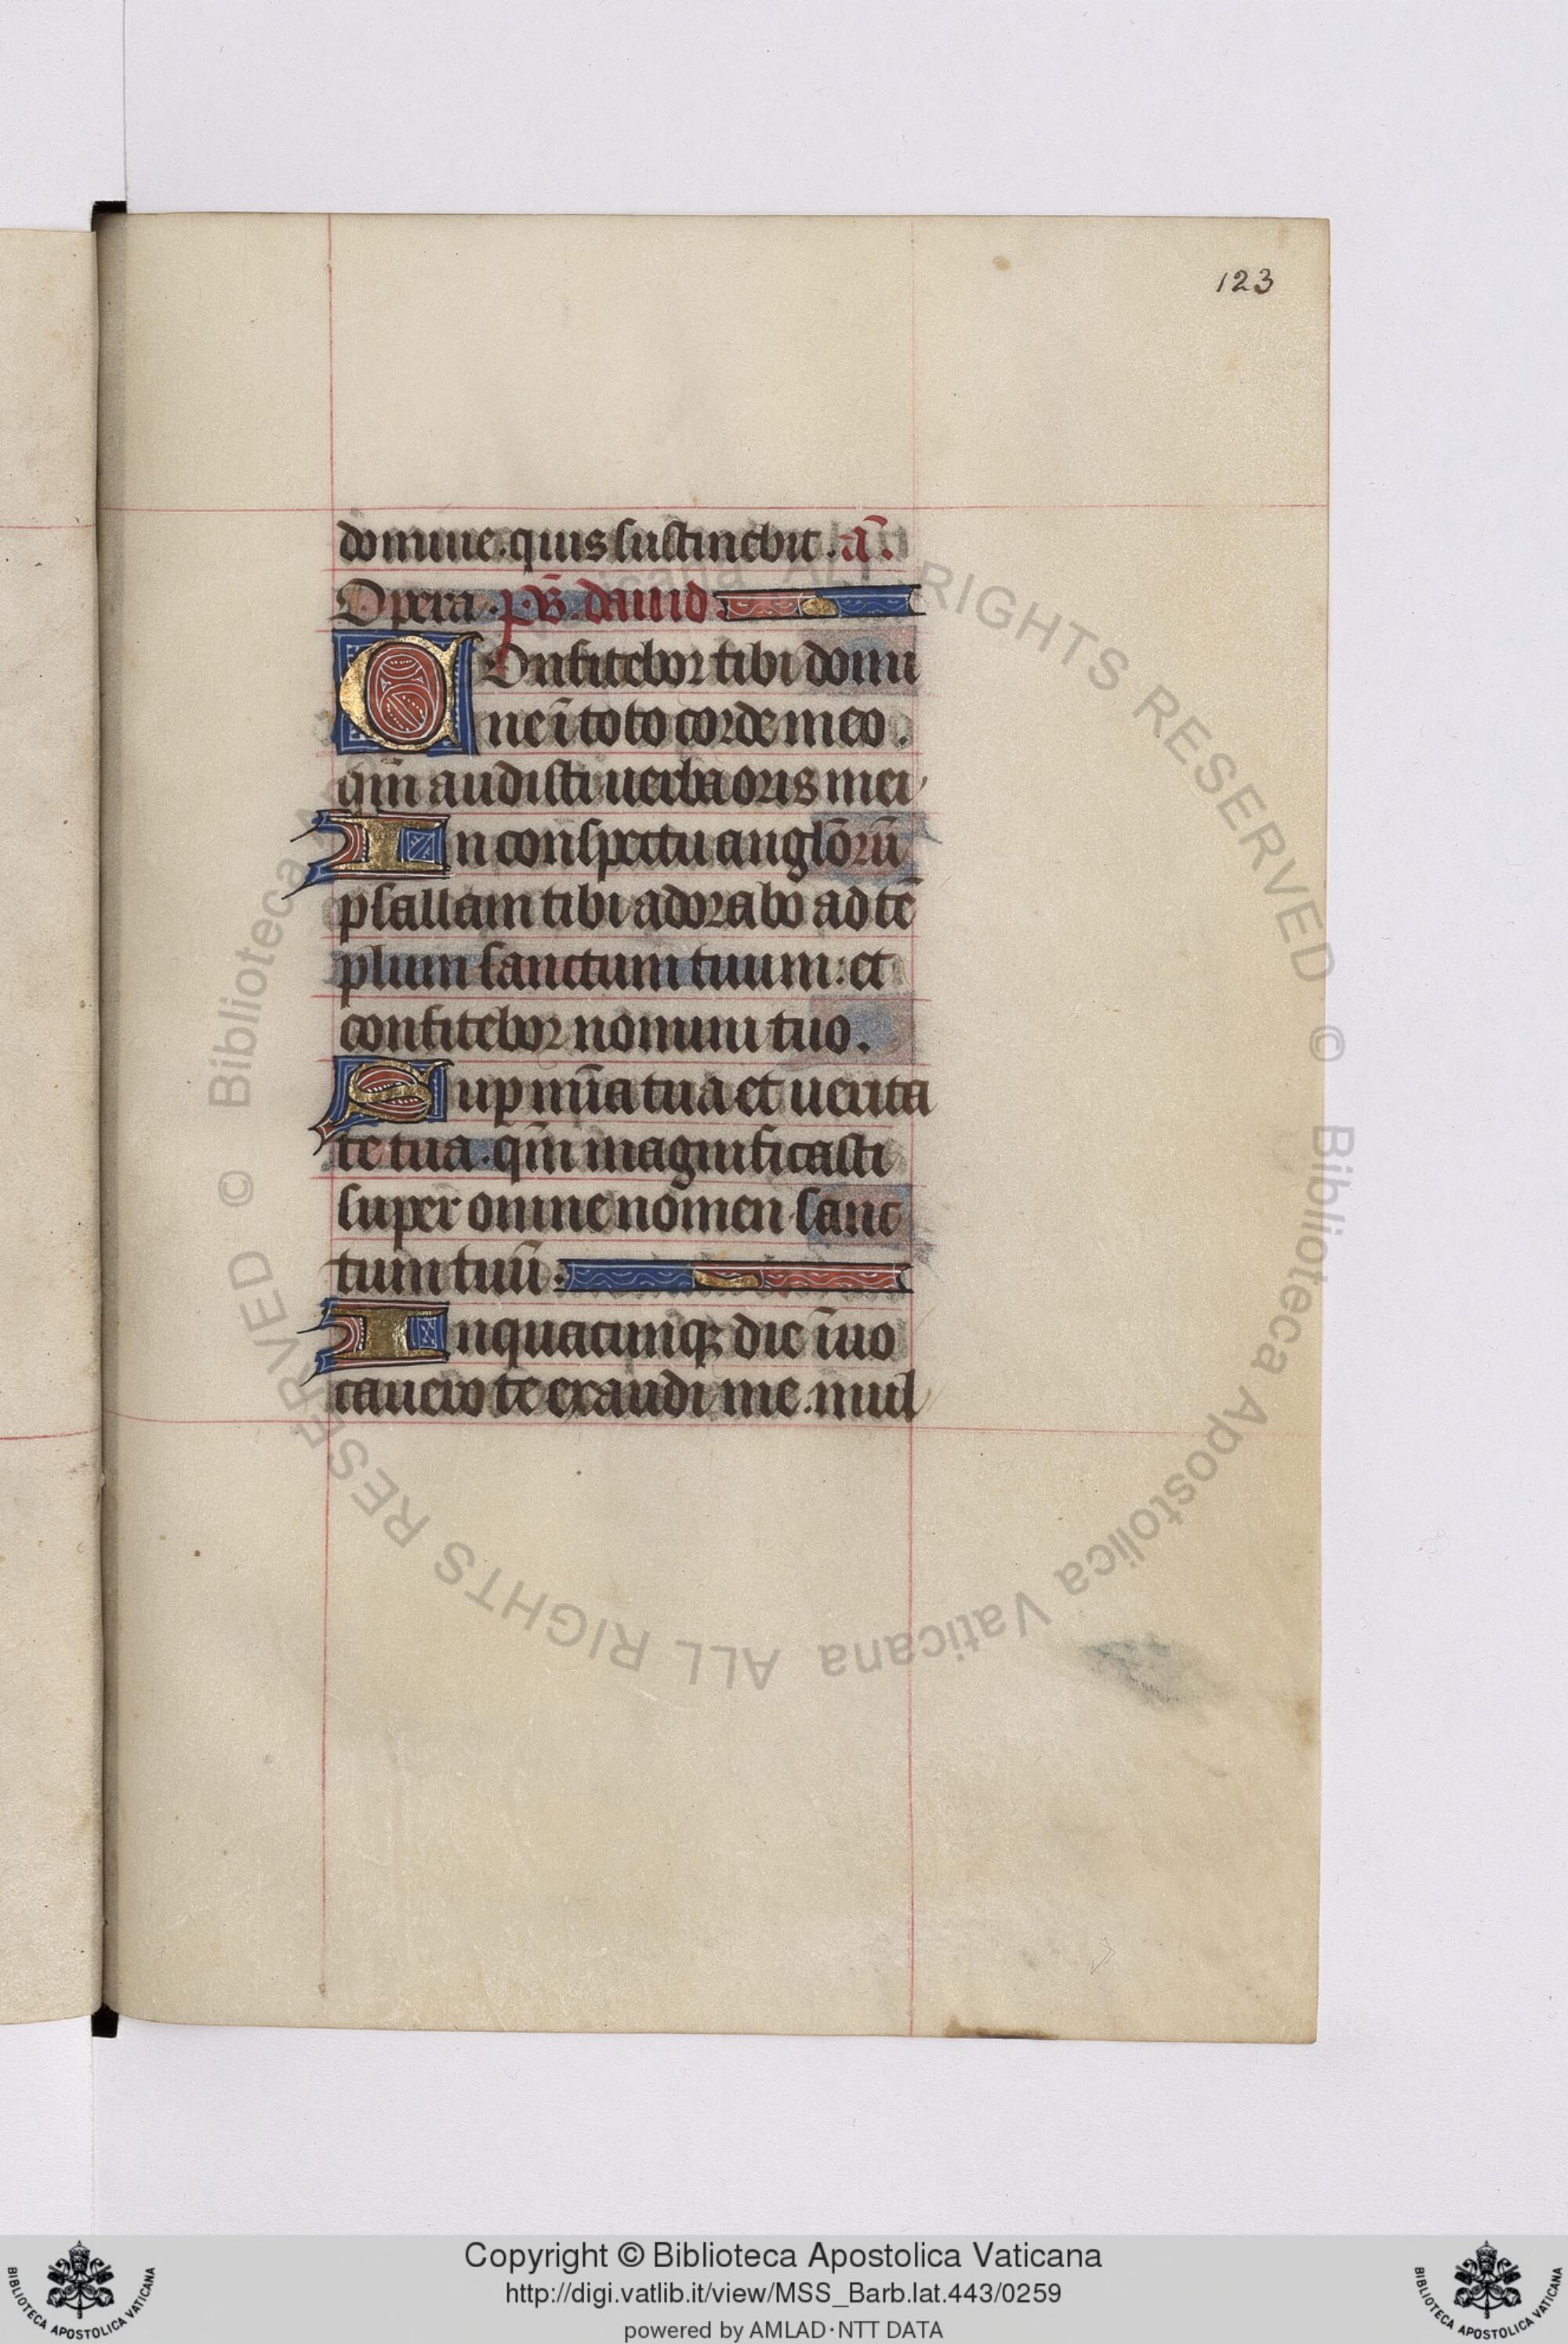 123
domine.quis sustinebit.a᷃.
Opera.p̄s̄.dauid.
Confitebor tibi domi
ne ī toto corde meo.
qm̄ audisti uerba oris mei
In conspectu angl̄orū
psallam tibi adorabo ad tē
plum sanctum tuum:et
confitebor nomini tuo.
Sup mīa tua et uerita
te tua.qm̄ magnificasti
super omne nomen sanc
tum tuū.
In quacunqꝫ die īuo
cauero te exaudi me.mul
© Biblioteca Apostolica Vaticana ALL RIGHTS RESERVED © Biblioteca Apostolica Vaticana ALL RIGHTS RESERVED
Copyright © Biblioteca Apostolica Vaticana
http://digi.vatlib.it/view/MSS_Barb.lat.443/0259
powered by AMLAD·NTT DATA
BIBLIOTECA APOSTOLICA VATICANA
BIBLIOTECA APOSTOLICA VATICANA